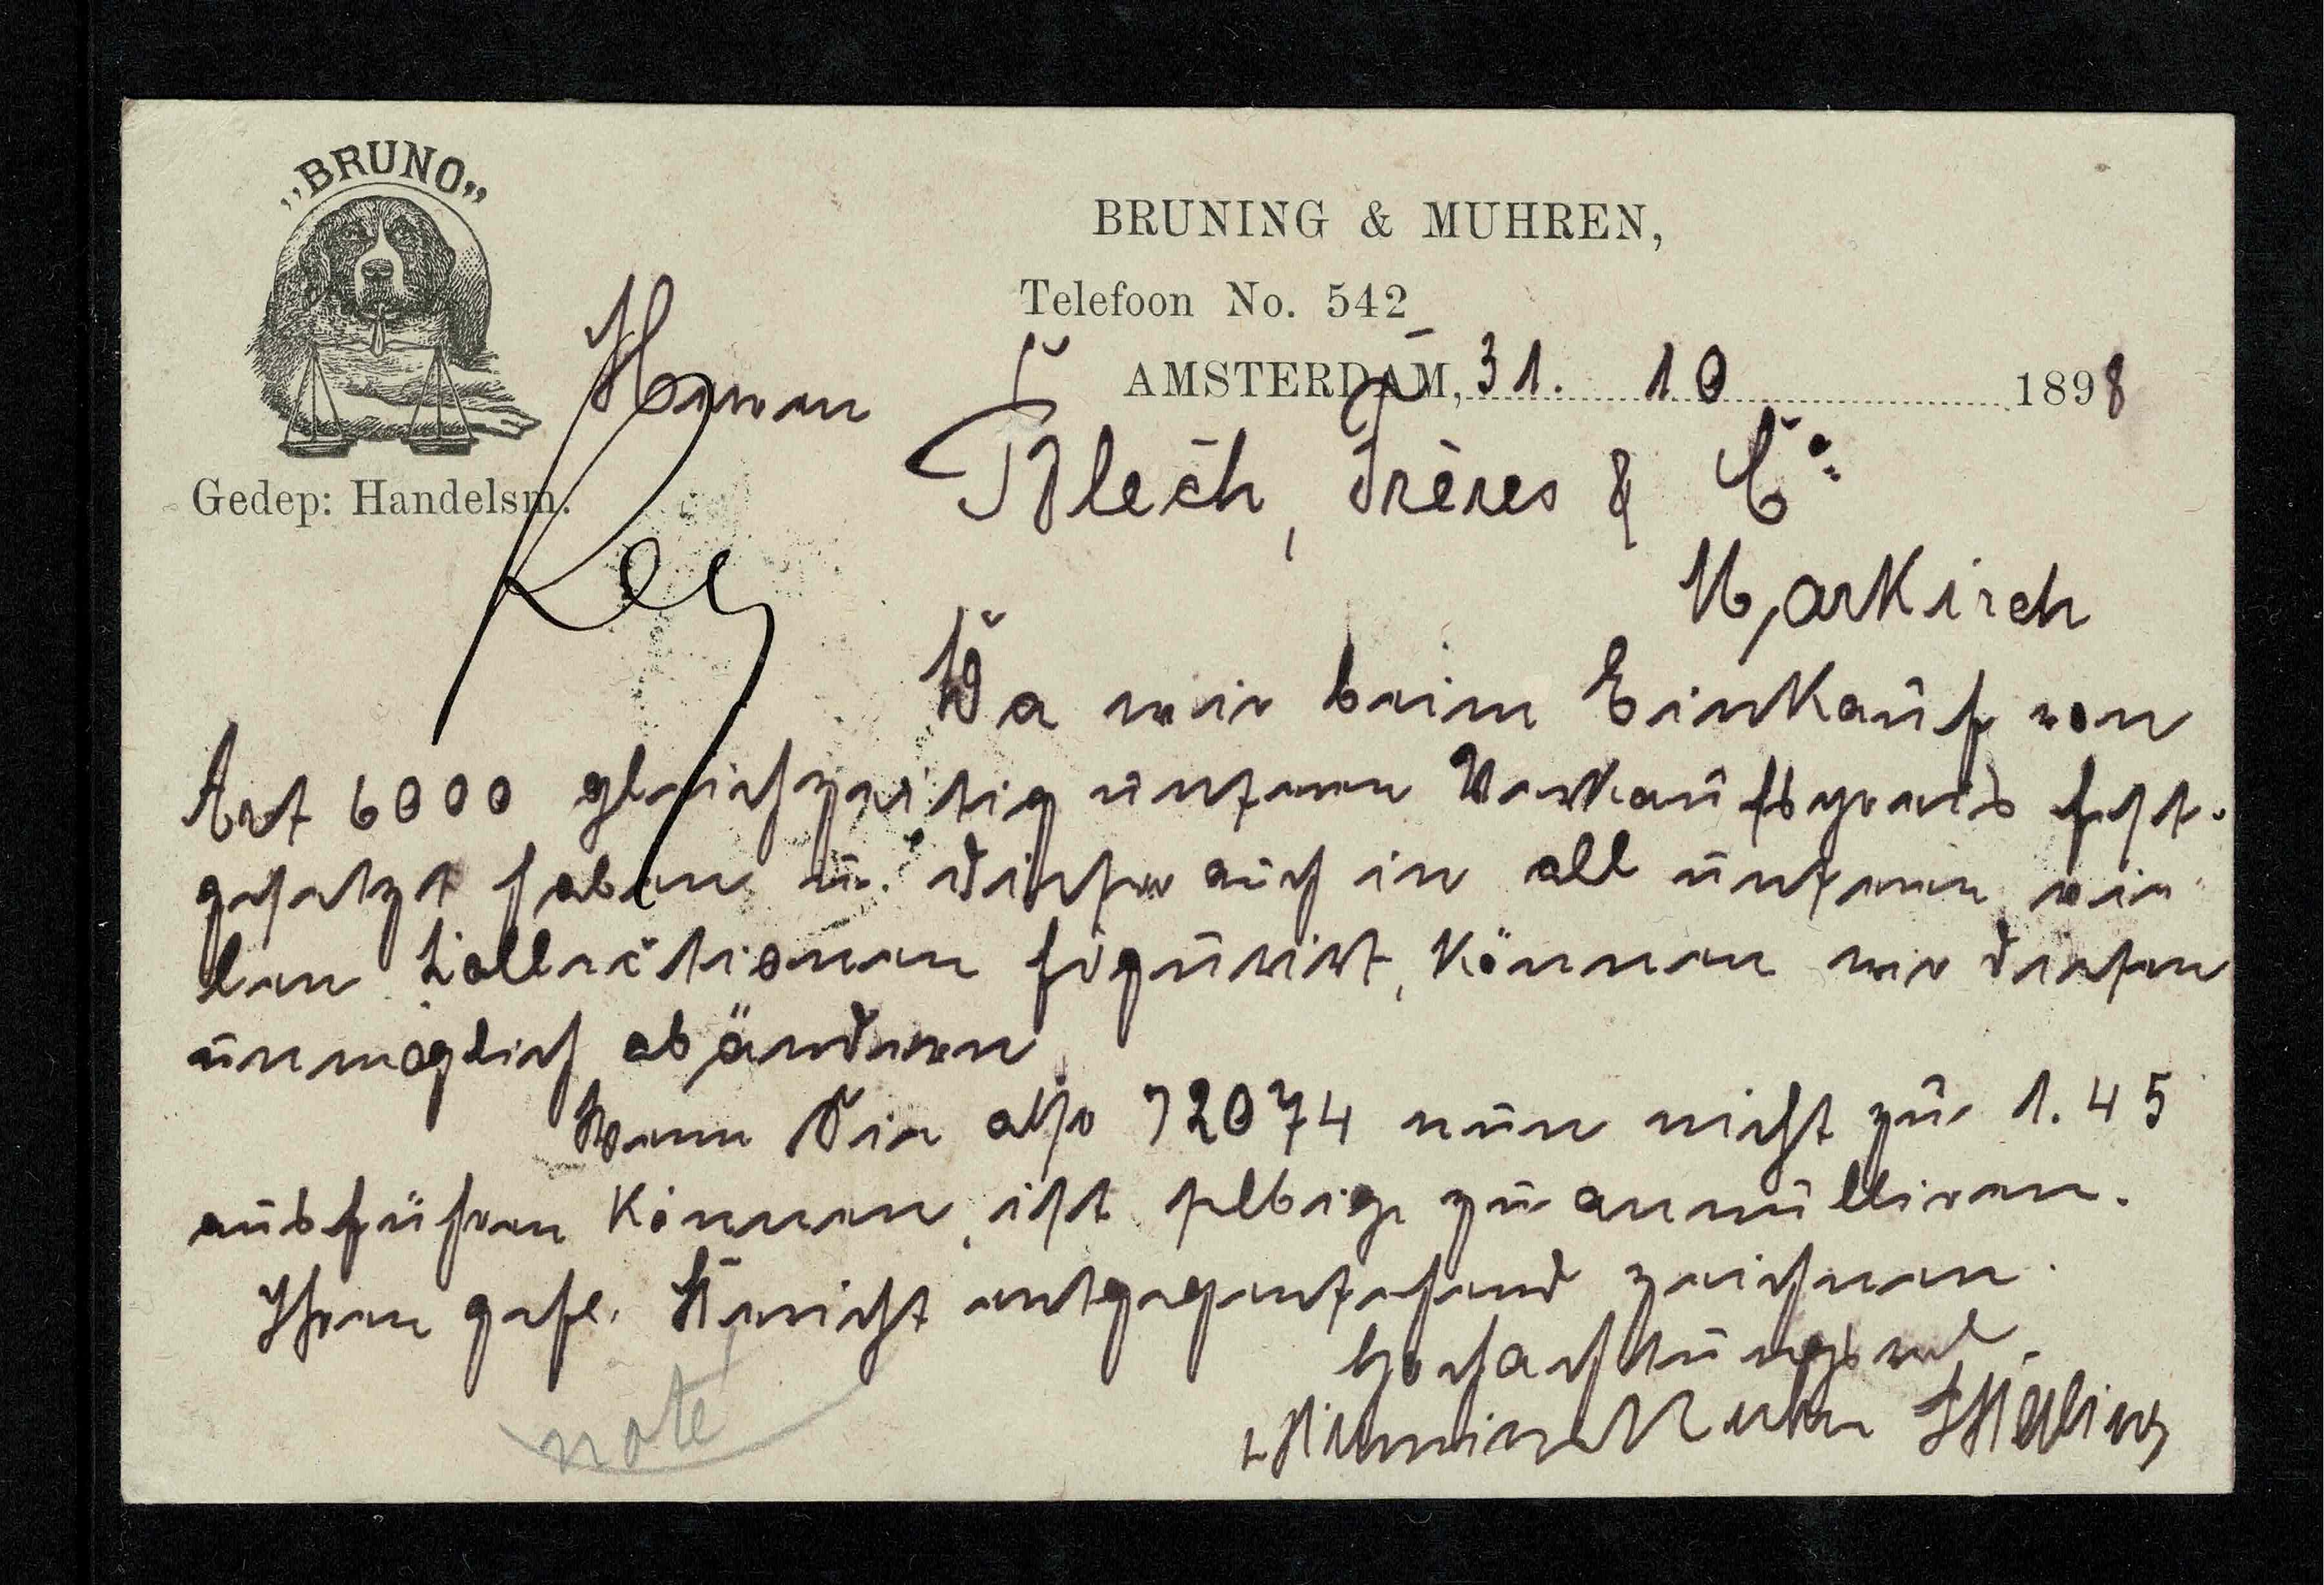 „BRUNO„
BRUNING & MUHREN,
Telefoon No. 542
AMSTERDAM, 31. 10 1898
Gedep: Handelsm.
Herren
Blech, Frères & Co
Markirch
Da wir beim Einkauf von
Art 6000 gleichzeitig unseren Verkaufspreis fest-
gesetzt haben u. dieser auch in all unseren vie-
len Collectionen figurirt, können wir diesen
unmöglich abändern
Wenn Sie also 72074 nun nicht zu 1.45
ausführen können, ist selbige zu annulliren.
Ihren gefl. Bericht entgegensehend zeichnen
Hochachtungsvoll
note